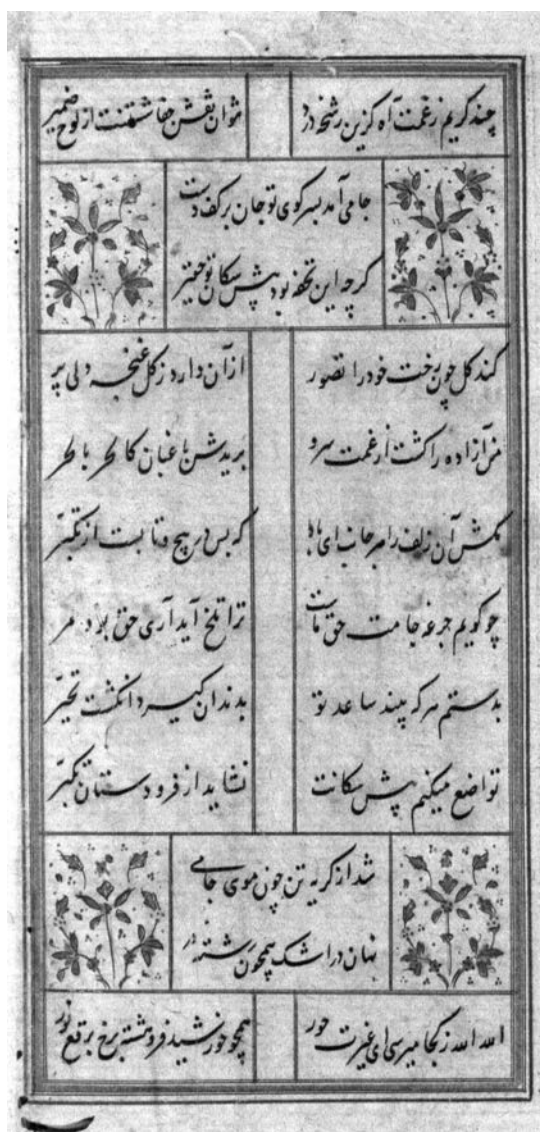 چند گریم ز غمت آه کزین رشحه درد نتوان نقش جفا شستنت از لوح ضمیر
جامی آمد بسر کوی تو جان بر کف دست
گرچه این تحفه بود پیش سکان تو حقیر
کند گل چون رخت خود را تصور از آن دارد ز گل غنچه دلی پر
من آزاده را کشت از غمت سرو بریدش باغبان کالحر بالحر
مکش آن زلف را هر جانب ای باد که بس در پیچ و تابست از تکبر
چو گویم جرعه جامت حق ماست ترا تلخ آید آری حق بود مر
بدستم هر که بیند ساعد تو بدندان گیرد انگشت تحیر
تواضع میکنم پیش سکانت نشاید از فرودستان تکبر
شد از گریه تن چون موی جامی
نهان در اشک همچون رشته در
الله الله ز کجا میرسی ای غیرت حور همچو خورشید فروهشته برخ برقع نور